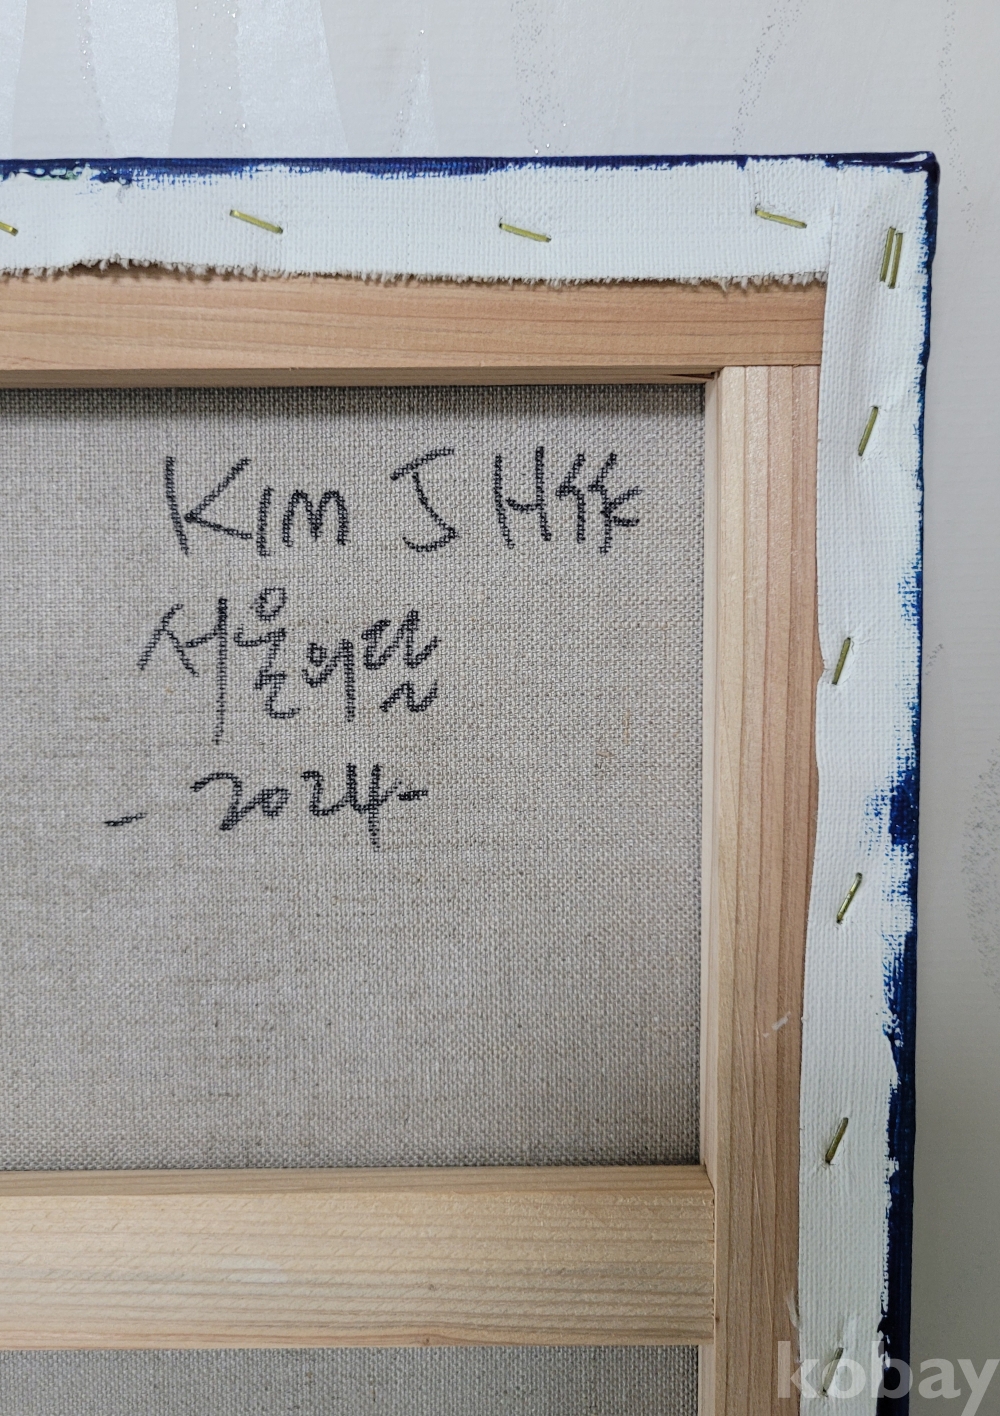 KIM J H
서울의달
- 2024 -
kobay